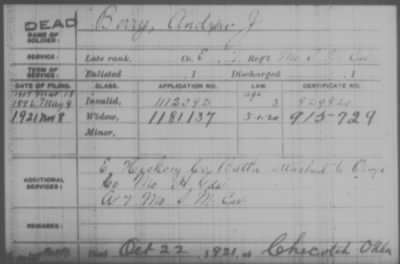 DEAD
NAME OF SOLDIER: Berry, Andrew J
SERVICE: Late rank, Co. E, 7 Reg't Mo. S. M. Cav
TERM OF SERVICE: Enlisted , 1 Discharged , 1
DATE OF FILING. CLASS. APPLICATION NO. LAW. CERTIFICATE NO.
1892 May 9 Invalid, 3
1921 Nov 8 Widow, 1181137 915-729
Minor,
ADDITIONAL SERVICES: E, Hickory Co Battn attached to
Co Mo H Gds
A 7 Mo S M Cav
REMARKS:
Died Oct 22, 1921, at Checotah Okla